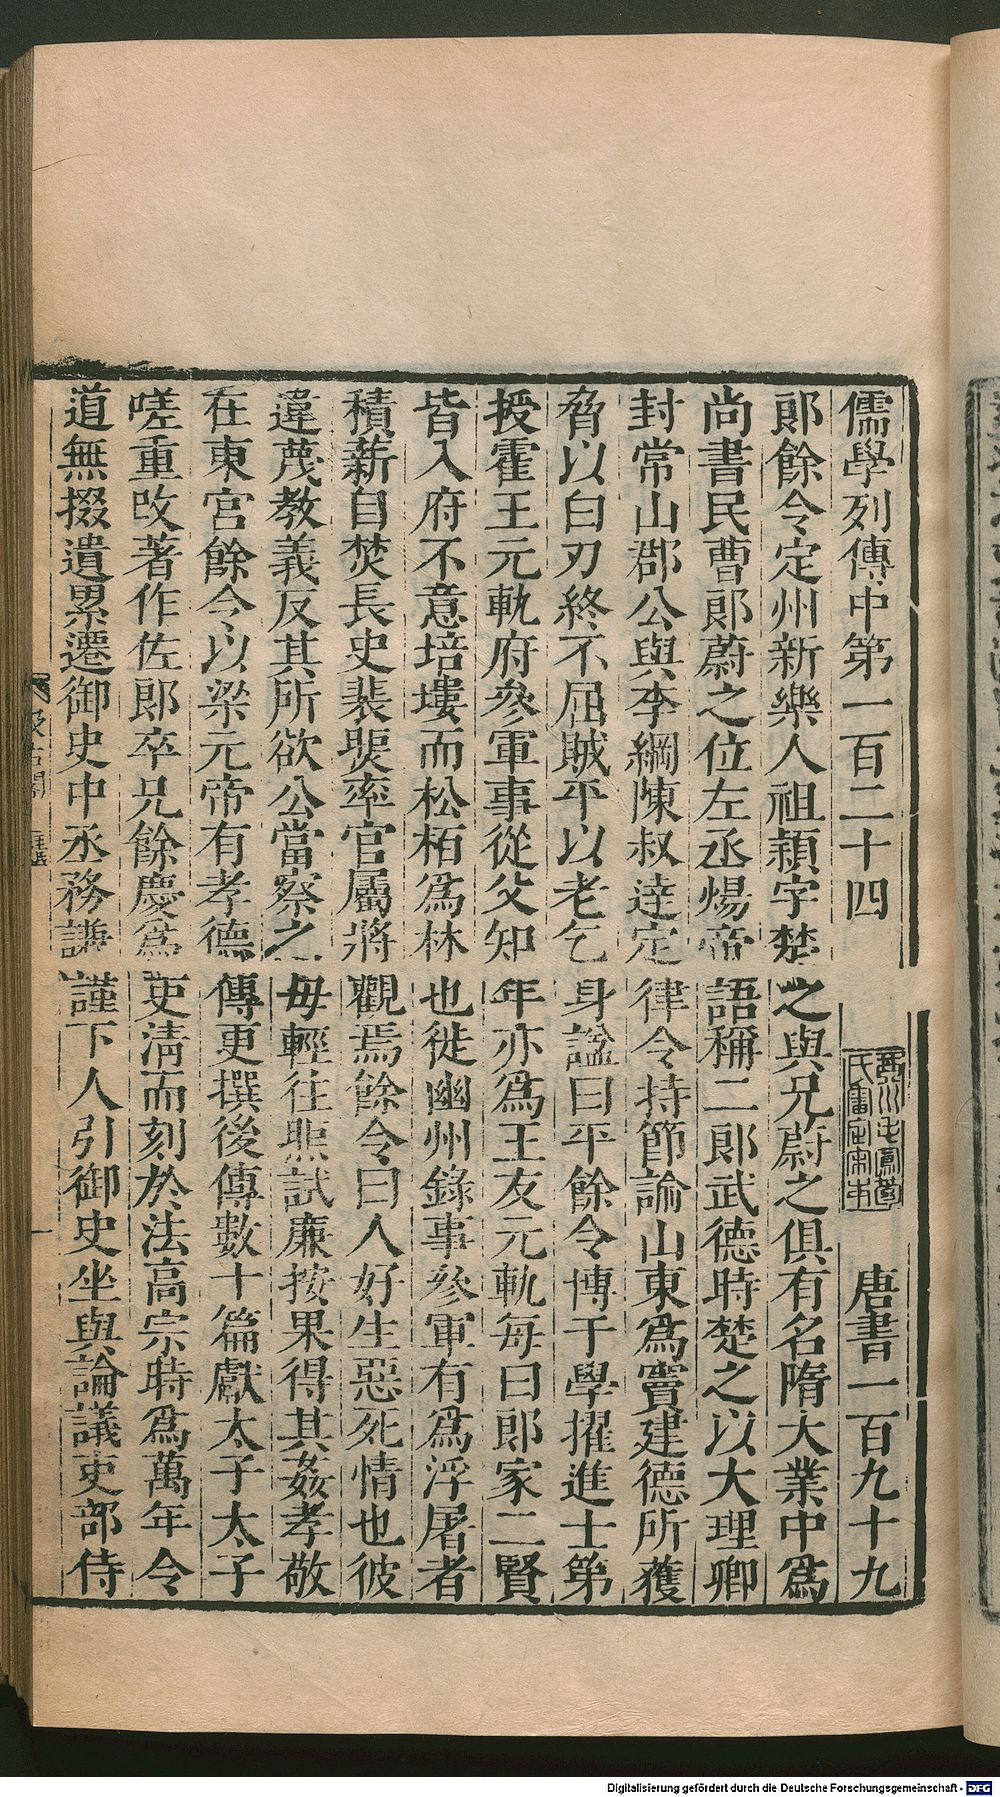 儒學列傳中第一百二十四 唐書一百九十九
郎餘令定州新樂人祖穎字楚之與兄蔚之俱有名隋大業中爲
尚書民曹郎蔚之位左丞煬帝語稱二郎武德時楚之以大理卿
封常山郡公與李綱陳叔達定律令持節諭山東爲竇建德所獲
脅以白刃終不屈賊平以老乞身謚曰平餘令博于學擢進士第
授霍王元軌府參軍事從父知年亦爲王友元軌每曰郎家二賢
皆入府不意培塿而松栢爲林也徙幽州錄事參軍有爲浮屠者
積薪自焚長史裴煚率官屬將觀焉餘令曰人好生惡死情也彼
違蔑教義反其所欲公當察之毋輕往煚試廉按果得其姦孝敬
在東宮餘令以梁元帝有孝德傳更撰後傳數十篇獻太子太子
嗟重改著作佐郎卒兄餘慶爲吏清而刻於法高宗時爲萬年令
道無掇遺累遷御史中丞務謙謹下人引御史坐與論議吏部侍
汲古閣
一
Digitalisierung gefördert durch die Deutsche Forschungsgemeinschaft - DFG